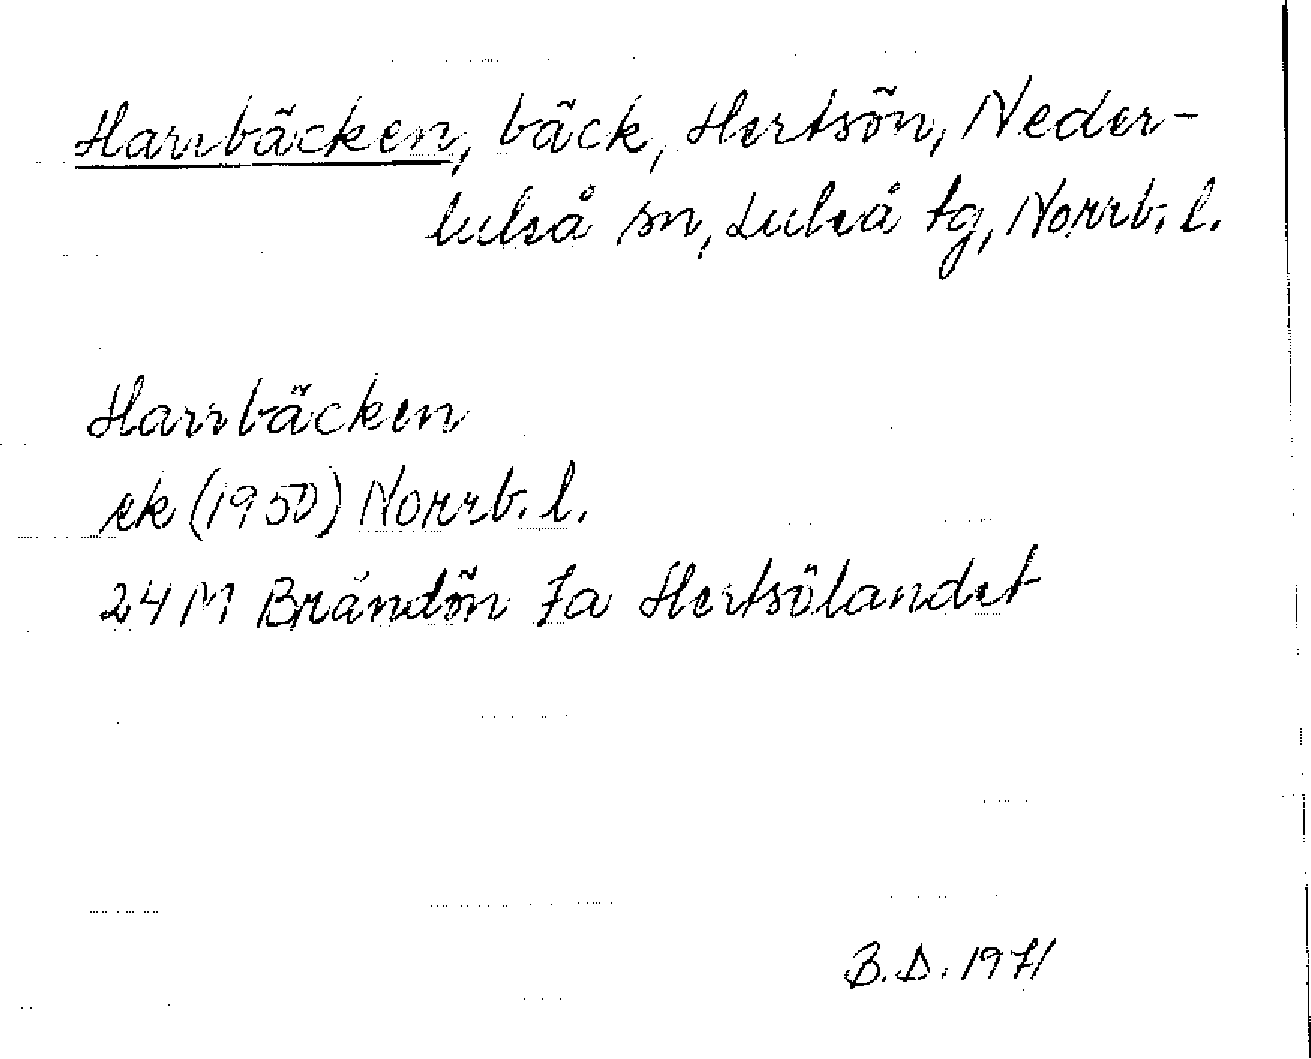 Harrbäcken, bäck, Hertsön, Neder-
luleå sn, Luleå tg, Norrb. l.
Harrbäcken
ek (1950) Norrb. l.
24M Brändön 7a Hertsölandet
B.D. 1971